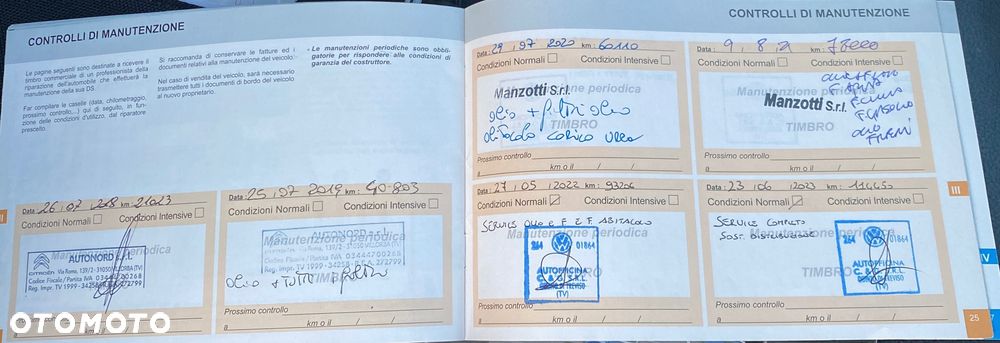 CONTROLLI DI MANUTENZIONE
Le pagine seguenti sono destinate a ricevere il
timbro commerciale di un professionista della
riparazione dell'automobile che effettuerà la
manutenzione della sua DS.
Far compilare le caselle (data, chilometraggio,
prossimo controllo...) qui di seguito, in fun-
zione delle condizioni d'utilizzo, dal riparatore
prescelto.
Si raccomanda di conservare le fatture ed i
documenti relativi alla manutenzione del veicolo.
Nel caso di vendita del veicolo, sarà necessario
trasmettere tutti i documenti di bordo del veicolo
al nuovo proprietario.
- Le manutenzioni periodiche sono obbli-
gatorie per rispondere alle condizioni di
garanzia del costruttore.
Data: 26 / 07 / km: 21023
Condizioni Normali Condizioni Intensive
AUTONORD s.r.l.
Via Roma, 139/2 - 31050 VILLORBA (TV)
Codice Fiscale / Partita IVA 03444700268
Reg. Impr. TV 1999
Prossimo controllo
a km o il / /
Data: 25 / 07 2019 km: 40.803
Condizioni Normali Condizioni Intensive
Manutenzione periodica
AUTONORD s.r.l.
Via Roma, 139/2 - 31050 VILLORBA (TV)
Codice Fiscale / Partita IVA 03444700268
Reg. Impr. TV 1999
olio + tutti filtri
Prossimo controllo
a km o il / /
CONTROLLI DI MANUTENZIONE
Data: 29 / 07 2020 km: 60110
Condizioni Normali Condizioni Intensive
Manutenzione periodica
Manzotti S.r.l.
olio + filtri olio
TIMBRO
Prossimo controllo
a km o il / /
Data: 9 / 8 / 2 78000
Condizioni Normali Condizioni Intensive
Manutenzione periodica
Manzotti S.r.l.
TIMBRO
Prossimo controllo
a km o il / /
Data: 27 / 05 / 2022 km: 93206
Condizioni Normali Condizioni Intensive
SERVICE OLIO E F. E F. ABITACOLO
Manutenzione periodica
264 01864
AUTOFFICINA
C. & G. S.R.L.
DI TREVISO
(TV)
TIMBRO
Prossimo controllo
a km o il / /
Data: 23 / 06 / 2023 km: 114450
Condizioni Normali Condizioni Intensive
SERVICE COMPLETO
SOST. DISTRIBUZIONE
Manutenzione periodica
264 01864
AUTOFFICINA
C. & G. S.R.L.
DI TREVISO
(TV)
TIMBRO
Prossimo controllo
a km o il / /
III
IV
25
OTOMOTO